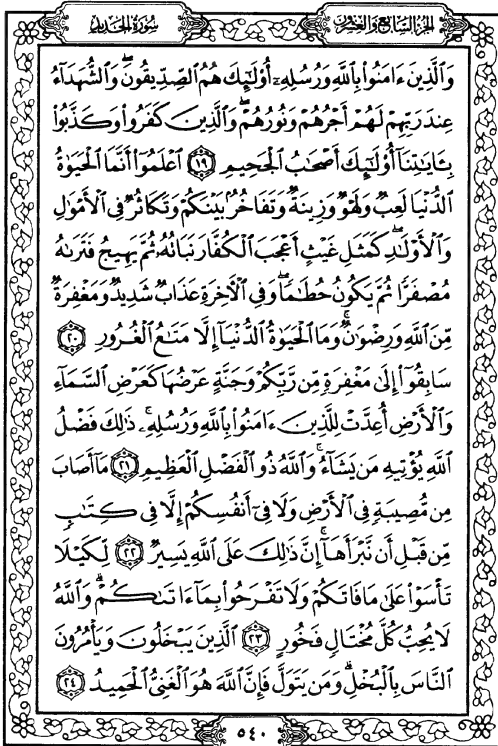 سورة الحديد
الجزء السابع والعشرون
وَالَّذِينَ ءَامَنُوا۟ بِاللَّهِ وَرُسُلِهِۦٓ أُو۟لَٰٓئِكَ هُمُ الصِّدِّيقُونَ ۖ وَالشُّهَدَآءُ
عِندَ رَبِّهِمْ لَهُمْ أَجْرُهُمْ وَنُورُهُمْ ۖ وَالَّذِينَ كَفَرُوا۟ وَكَذَّبُوا۟
بِـَٔايَٰتِنَآ أُو۟لَٰٓئِكَ أَصْحَٰبُ الْجَحِيمِ ١٩ اعْلَمُوٓا۟ أَنَّمَا الْحَيَوٰةُ
الدُّنْيَا لَعِبٌ وَلَهْوٌ وَزِينَةٌ وَتَفَاخُرٌۢ بَيْنَكُمْ وَتَكَاثُرٌ فِى الْأَمْوَٰلِ
وَالْأَوْلَٰدِ ۖ كَمَثَلِ غَيْثٍ أَعْجَبَ الْكُفَّارَ نَبَاتُهُۥ ثُمَّ يَهِيجُ فَتَرَىٰهُ
مُصْفَرًّا ثُمَّ يَكُونُ حُطَٰمًا ۖ وَفِى الْأَخِرَةِ عَذَابٌ شَدِيدٌ وَمَغْفِرَةٌ
مِّنَ اللَّهِ وَرِضْوَٰنٌ ۚ وَمَا الْحَيَوٰةُ الدُّنْيَآ إِلَّا مَتَٰعُ الْغُرُورِ ٢٠
سَابِقُوٓا۟ إِلَىٰ مَغْفِرَةٍ مِّن رَّبِّكُمْ وَجَنَّةٍ عَرْضُهَا كَعَرْضِ السَّمَآءِ
وَالْأَرْضِ أُعِدَّتْ لِلَّذِينَ ءَامَنُوا۟ بِاللَّهِ وَرُسُلِهِۦ ۚ ذَٰلِكَ فَضْلُ
اللَّهِ يُؤْتِيهِ مَن يَشَآءُ ۚ وَاللَّهُ ذُو الْفَضْلِ الْعَظِيمِ ٢١ مَآ أَصَابَ
مِن مُّصِيبَةٍ فِى الْأَرْضِ وَلَا فِىٓ أَنفُسِكُمْ إِلَّا فِى كِتَٰبٍ
مِّن قَبْلِ أَن نَّبْرَأَهَآ ۚ إِنَّ ذَٰلِكَ عَلَى اللَّهِ يَسِيرٌ ٢٢ لِّكَيْلَا
تَأْسَوْا۟ عَلَىٰ مَا فَاتَكُمْ وَلَا تَفْرَحُوا۟ بِمَآ ءَاتَىٰكُمْ ۗ وَاللَّهُ
لَا يُحِبُّ كُلَّ مُخْتَالٍ فَخُورٍ ٢٣ الَّذِينَ يَبْخَلُونَ وَيَأْمُرُونَ
النَّاسَ بِالْبُخْلِ ۗ وَمَن يَتَوَلَّ فَإِنَّ اللَّهَ هُوَ الْغَنِىُّ الْحَمِيدُ ٢٤
٥٤٠